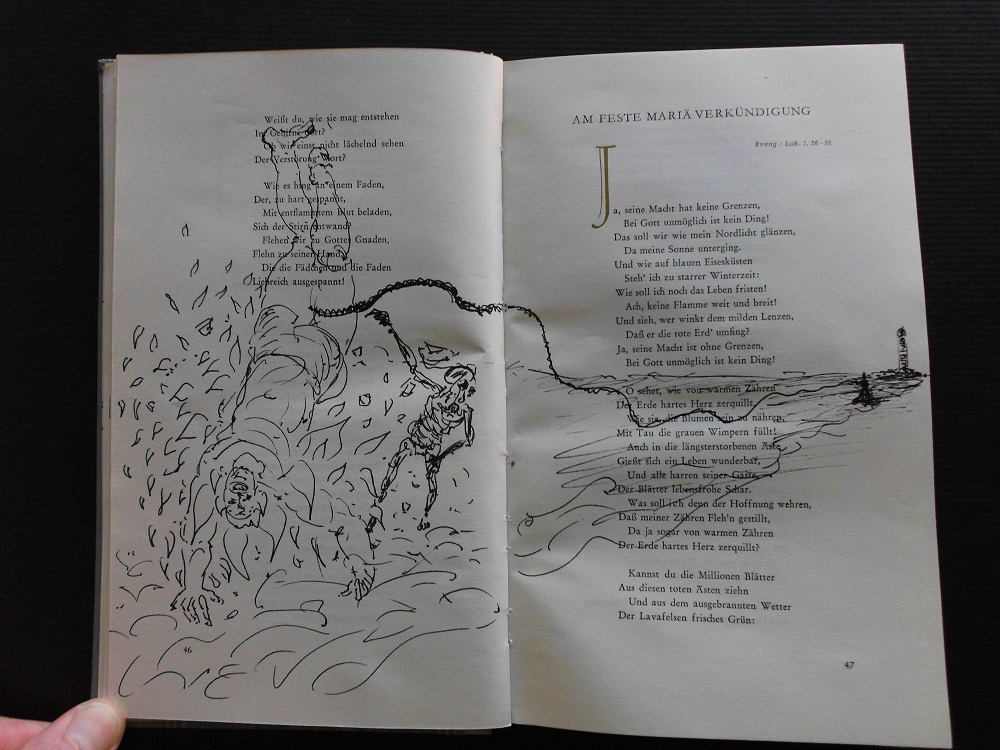 Weißt du, wie sie mag entstehen
Im Gehirne dort?
Ob wir einst nicht lächelnd sehen
Der Verstörung Wort?
Wie es hing an einem Faden,
Der, zu hart gespannt,
Mit entflammtem Blut beladen,
Sich der Stirn entwand?
Flehen wir zu Gottes Gnaden,
Flehn zu seiner Hand,
Die die Fädchen und die Faden
Liebreich ausgespannt!
46
AM FESTE MARIÄ VERKÜNDIGUNG
Evang.: Luk. 1, 26-38
Ja, seine Macht hat keine Grenzen,
Bei Gott unmöglich ist kein Ding!
Das soll wir wie mein Nordlicht glänzen,
Da meine Sonne unterging.
Und wie auf blauen Eisesküsten
Steh' ich zu starrer Winterzeit:
Wie soll ich noch das Leben fristen!
Ach, keine Flamme weit und breit!
Und sieh, wer winkt dem milden Lenzen,
Daß er die tote Erd' umfing?
Ja, seine Macht ist ohne Grenzen,
Bei Gott unmöglich ist kein Ding!
O sehet, wie von warmen Zähren
Der Erde hartes Herz zerquillt,
Wie sie, die Blumen fein zu nähren,
Mit Tau die grauen Wimpern füllt!
Auch in die längsterstorbenen Äste
Gießt sich ein Leben wunderbar,
Und alle harren seiner Gäste,
Der Blätter lebensfrohe Schar.
Was soll ich denn der Hoffnung wehren,
Daß meiner Zähren Fleh'n gestillt,
Da ja sogar von warmen Zähren
Der Erde hartes Herz zerquillt?
Kannst du die Millionen Blätter
Aus diesen toten Ästen ziehn
Und aus dem ausgebrannten Wetter
Der Lavafelsen frisches Grün:
47